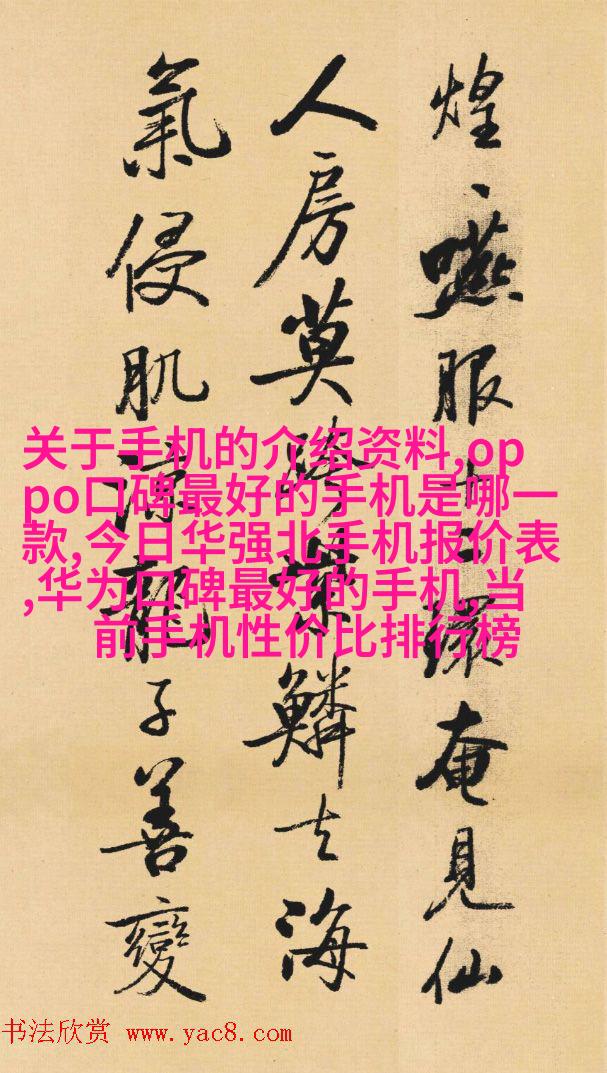 煌、嚥服奄見仙
人房莫鱗去海
氣侵肌子善變
关于手机的介绍资料,op
po口碑最好的手机是哪一
款,今日华强北手机报价表
,华为口碑最好的手机,当
前手机性价比排行榜
书法欣赏 www.yac8.com